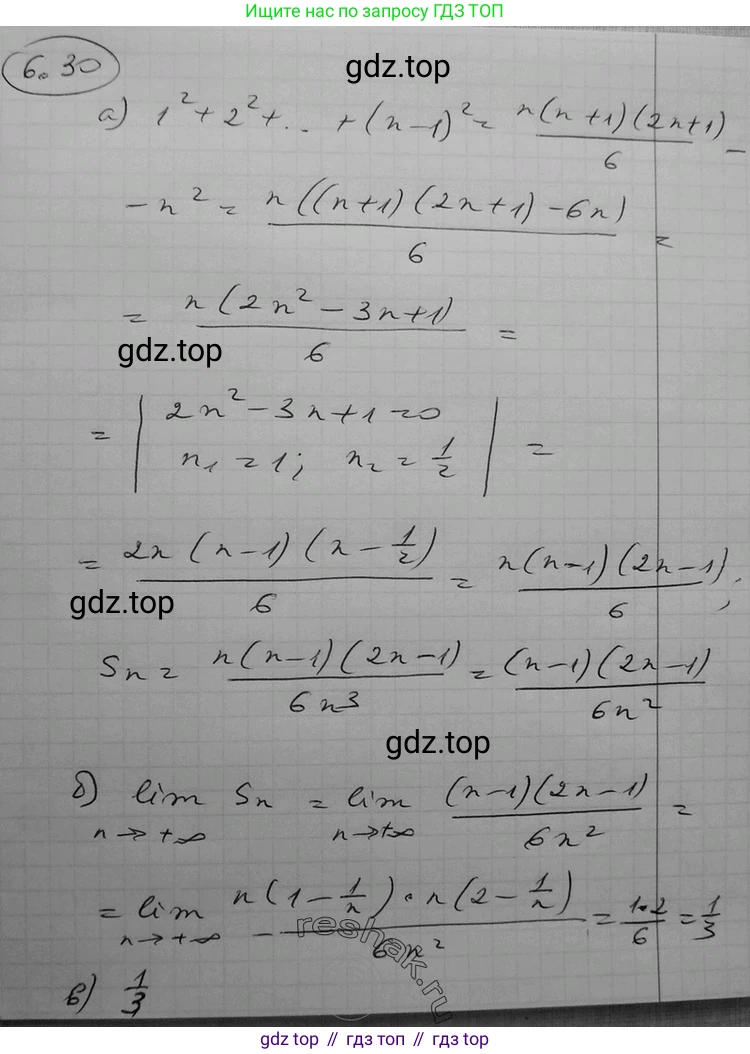 Ищите нас по запросу ГДЗ ТОП
6.30
gdz.top
а) 1² + 2² + .. + (n-1)² = n(n+1)(2n+1)/6 -
- n² = n((n+1)(2n+1) - 6n)/6 =
= n(2n² - 3n + 1)/6 =
gdz.top
= | 2n² - 3n + 1 = 0
n₁ = 1; n₂ = 1/2 | =
= 2n(n-1)(n - 1/2)/6 = n(n-1)(2n-1)/6 ;
gdz.top
Sn = n(n-1)(2n-1)/6n3 = (n-1)(2n-1)/6n²
gdz.top
б) lim n→+∞ Sn = lim n→+∞ (n-1)(2n-1)/6n² =
= lim n→+∞ n(1 - 1/n)·n(2 - 1/n)/6n² = 1·2/6 = 1/3
reshak.ru
в) 1/3
gdz top // гдз топ // gdz.top